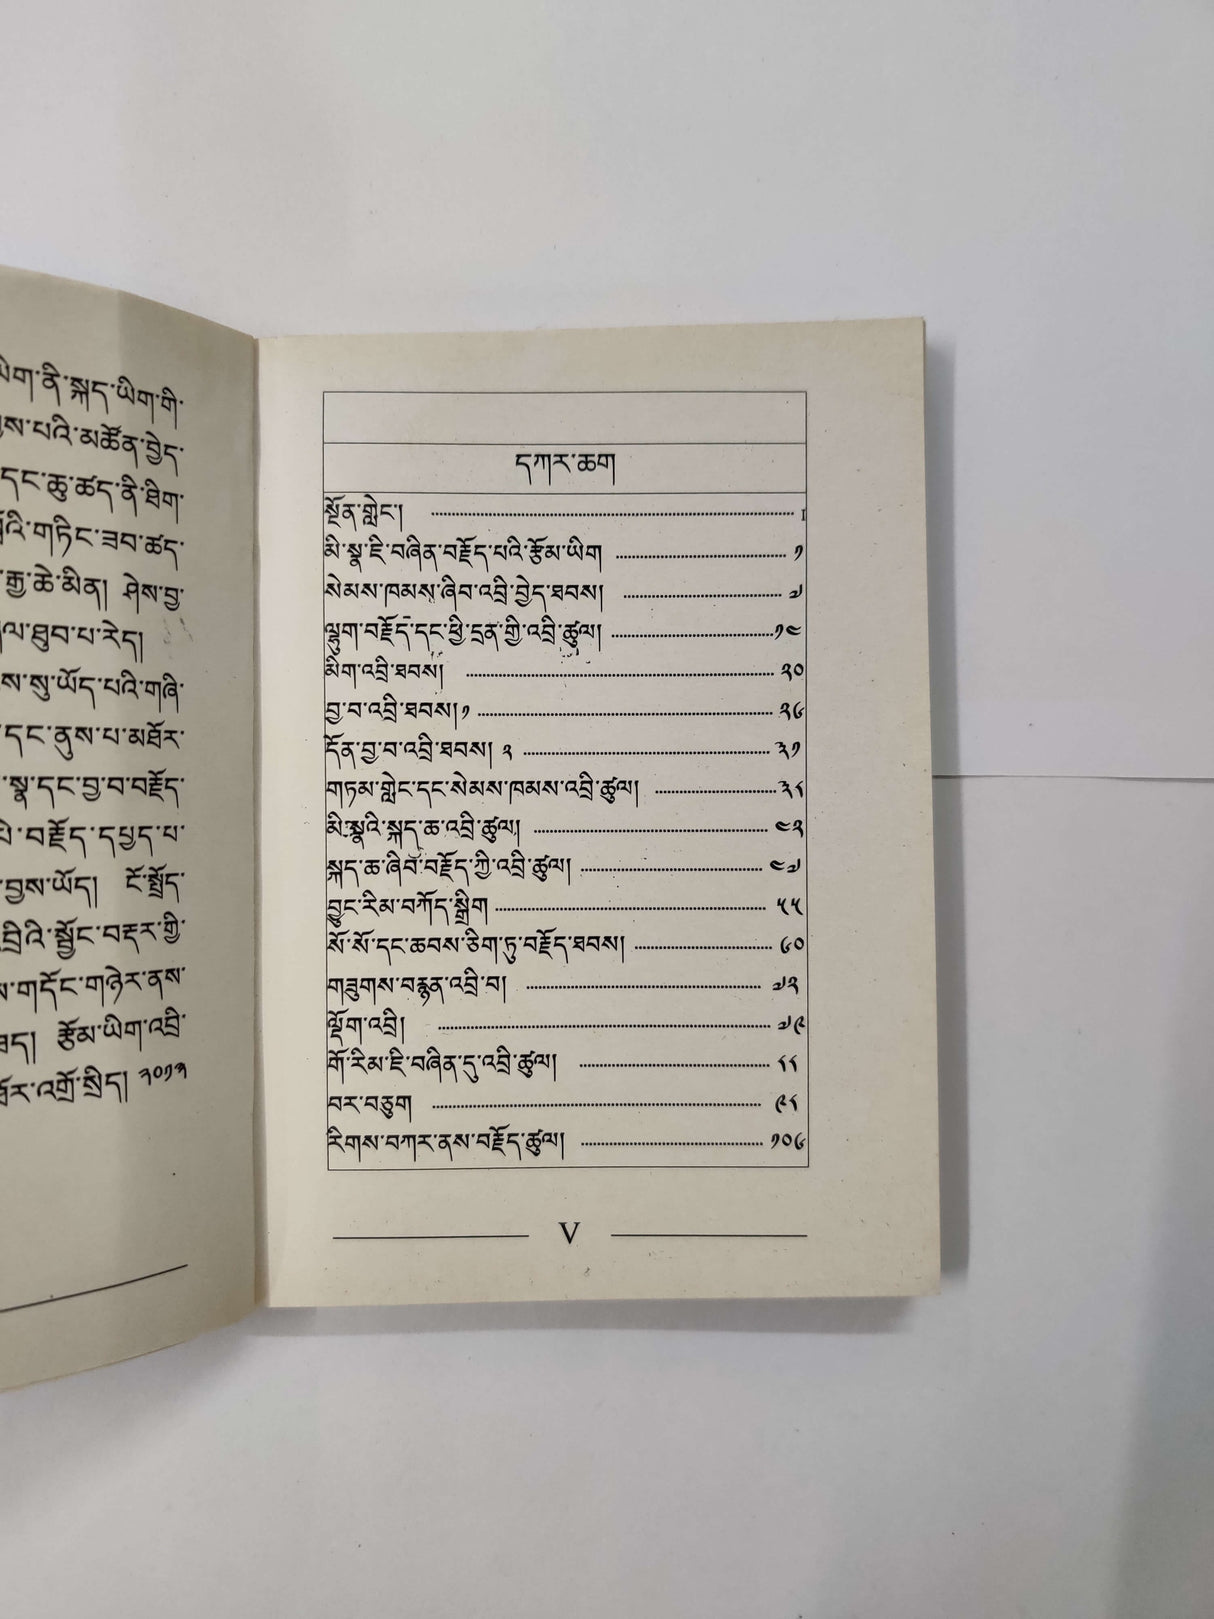 ཡིག་ནི་སྐད་ཡིག་གི་
པའི་མཚོན་བྱེད་
དང་ཆུ་ཚད་ནི་ཐིག་
གཏིང་ཟབ་ཚད་
རྒྱ་ཆེ་མིན། ཤེས་བྱ་
ཐུབ་པ་རེད།
སུ་ཡོད་པའི་གཞི་
དང་ནུས་པ་མཐོར་
སྣ་དང་བྱ་བ་བརྗོད་
བརྗོད་དཔྱད་པ་
བྱས་ཡོད། ངོ་སྤྲོད་
འབྲིའི་སྦྱོང་བརྡར་གྱི་
གདོང་གཉེར་ནས་
རྩོམ་ཡིག་འབྲི་
འགྲོ་སྲིད། ༢༠༡༣
དཀར་ཆག
སྔོན་གླེང་། I
མི་སྣ་ཇི་བཞིན་བརྗོད་པའི་རྩོམ་ཡིག ༡
སེམས་ཁམས་ཞིབ་འབྲི་བྱེད་ཐབས། ༧
ལྷུག་བརྗོད་དང་ཕྱི་དྲན་གྱི་འབྲི་ཚུལ། ༡༤
མིག་འབྲི་ཐབས། ༢༠
བྱ་བ་འབྲི་ཐབས།༡ ༢༦
དོན་བྱ་བ་འབྲི་ཐབས། ༢ ༣༡
གཏམ་གླེང་དང་སེམས་ཁམས་འབྲི་ཚུལ། ༣༨
མི་སྣའི་སྐད་ཆ་འབྲི་ཚུལ། ༤༢
སྐད་ཆ་ཞིབ་བརྗོད་ཀྱི་འབྲི་ཚུལ། ༤༧
བྱུང་རིམ་བཀོད་སྒྲིག ༥༥
སོ་སོ་དང་ཆབས་ཅིག་ཏུ་བརྗོད་ཐབས། ༦༠
གཟུགས་བརྙན་འབྲི་བ། ༧༢
ལྡོག་འབྲི། ༧༩
གོ་རིམ་ཇི་བཞིན་དུ་འབྲི་ཚུལ། ༨༨
བར་བཅུག ༩༨
རིགས་བཀར་ནས་བརྗོད་ཚུལ། ༡༠༦
V